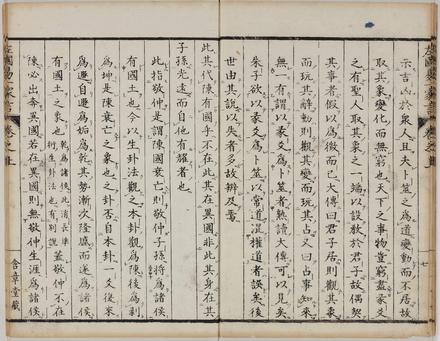 示吉凶於衆人且夫卜筮之爲道變動而不居故
取其象變化而無窮也天下之事物豈窮盡象爻
之有聖人取其象之一端以設教於君子故偶契
其事者假以爲徴而已大傳曰君子居則觀其象
而玩其辭動則觀其變而玩其占又曰占事知來
無一有謂以彖爻爲卜筮者熟讀大傳可以見矣
朱子欲以彖爻爲卜筮以常道混權道者誤矣後
世由其説以失者多故辨及焉
此其代陳有國乎不在此其在異國非此其身在其
子孫光遠而自他有耀者也
此指敬仲是謂陳國衰亡則敬仲子孫將爲諸侯
有國土也今以生卦法觀之本卦觀爲陳後爲剥
爲坤是陳衰亡之象也之卦否自本卦一爻從來
爲遯自遯爲姤爲乾其勢漸次隆盛而遂爲諸侯
有國土之象也
乾爲諸侯此消長準
衍生卦法也有別説
蓋敬仲不在
陳必出奔異國若在異國則無敬仲生涯爲諸侯
卷之上
七
含章堂藏